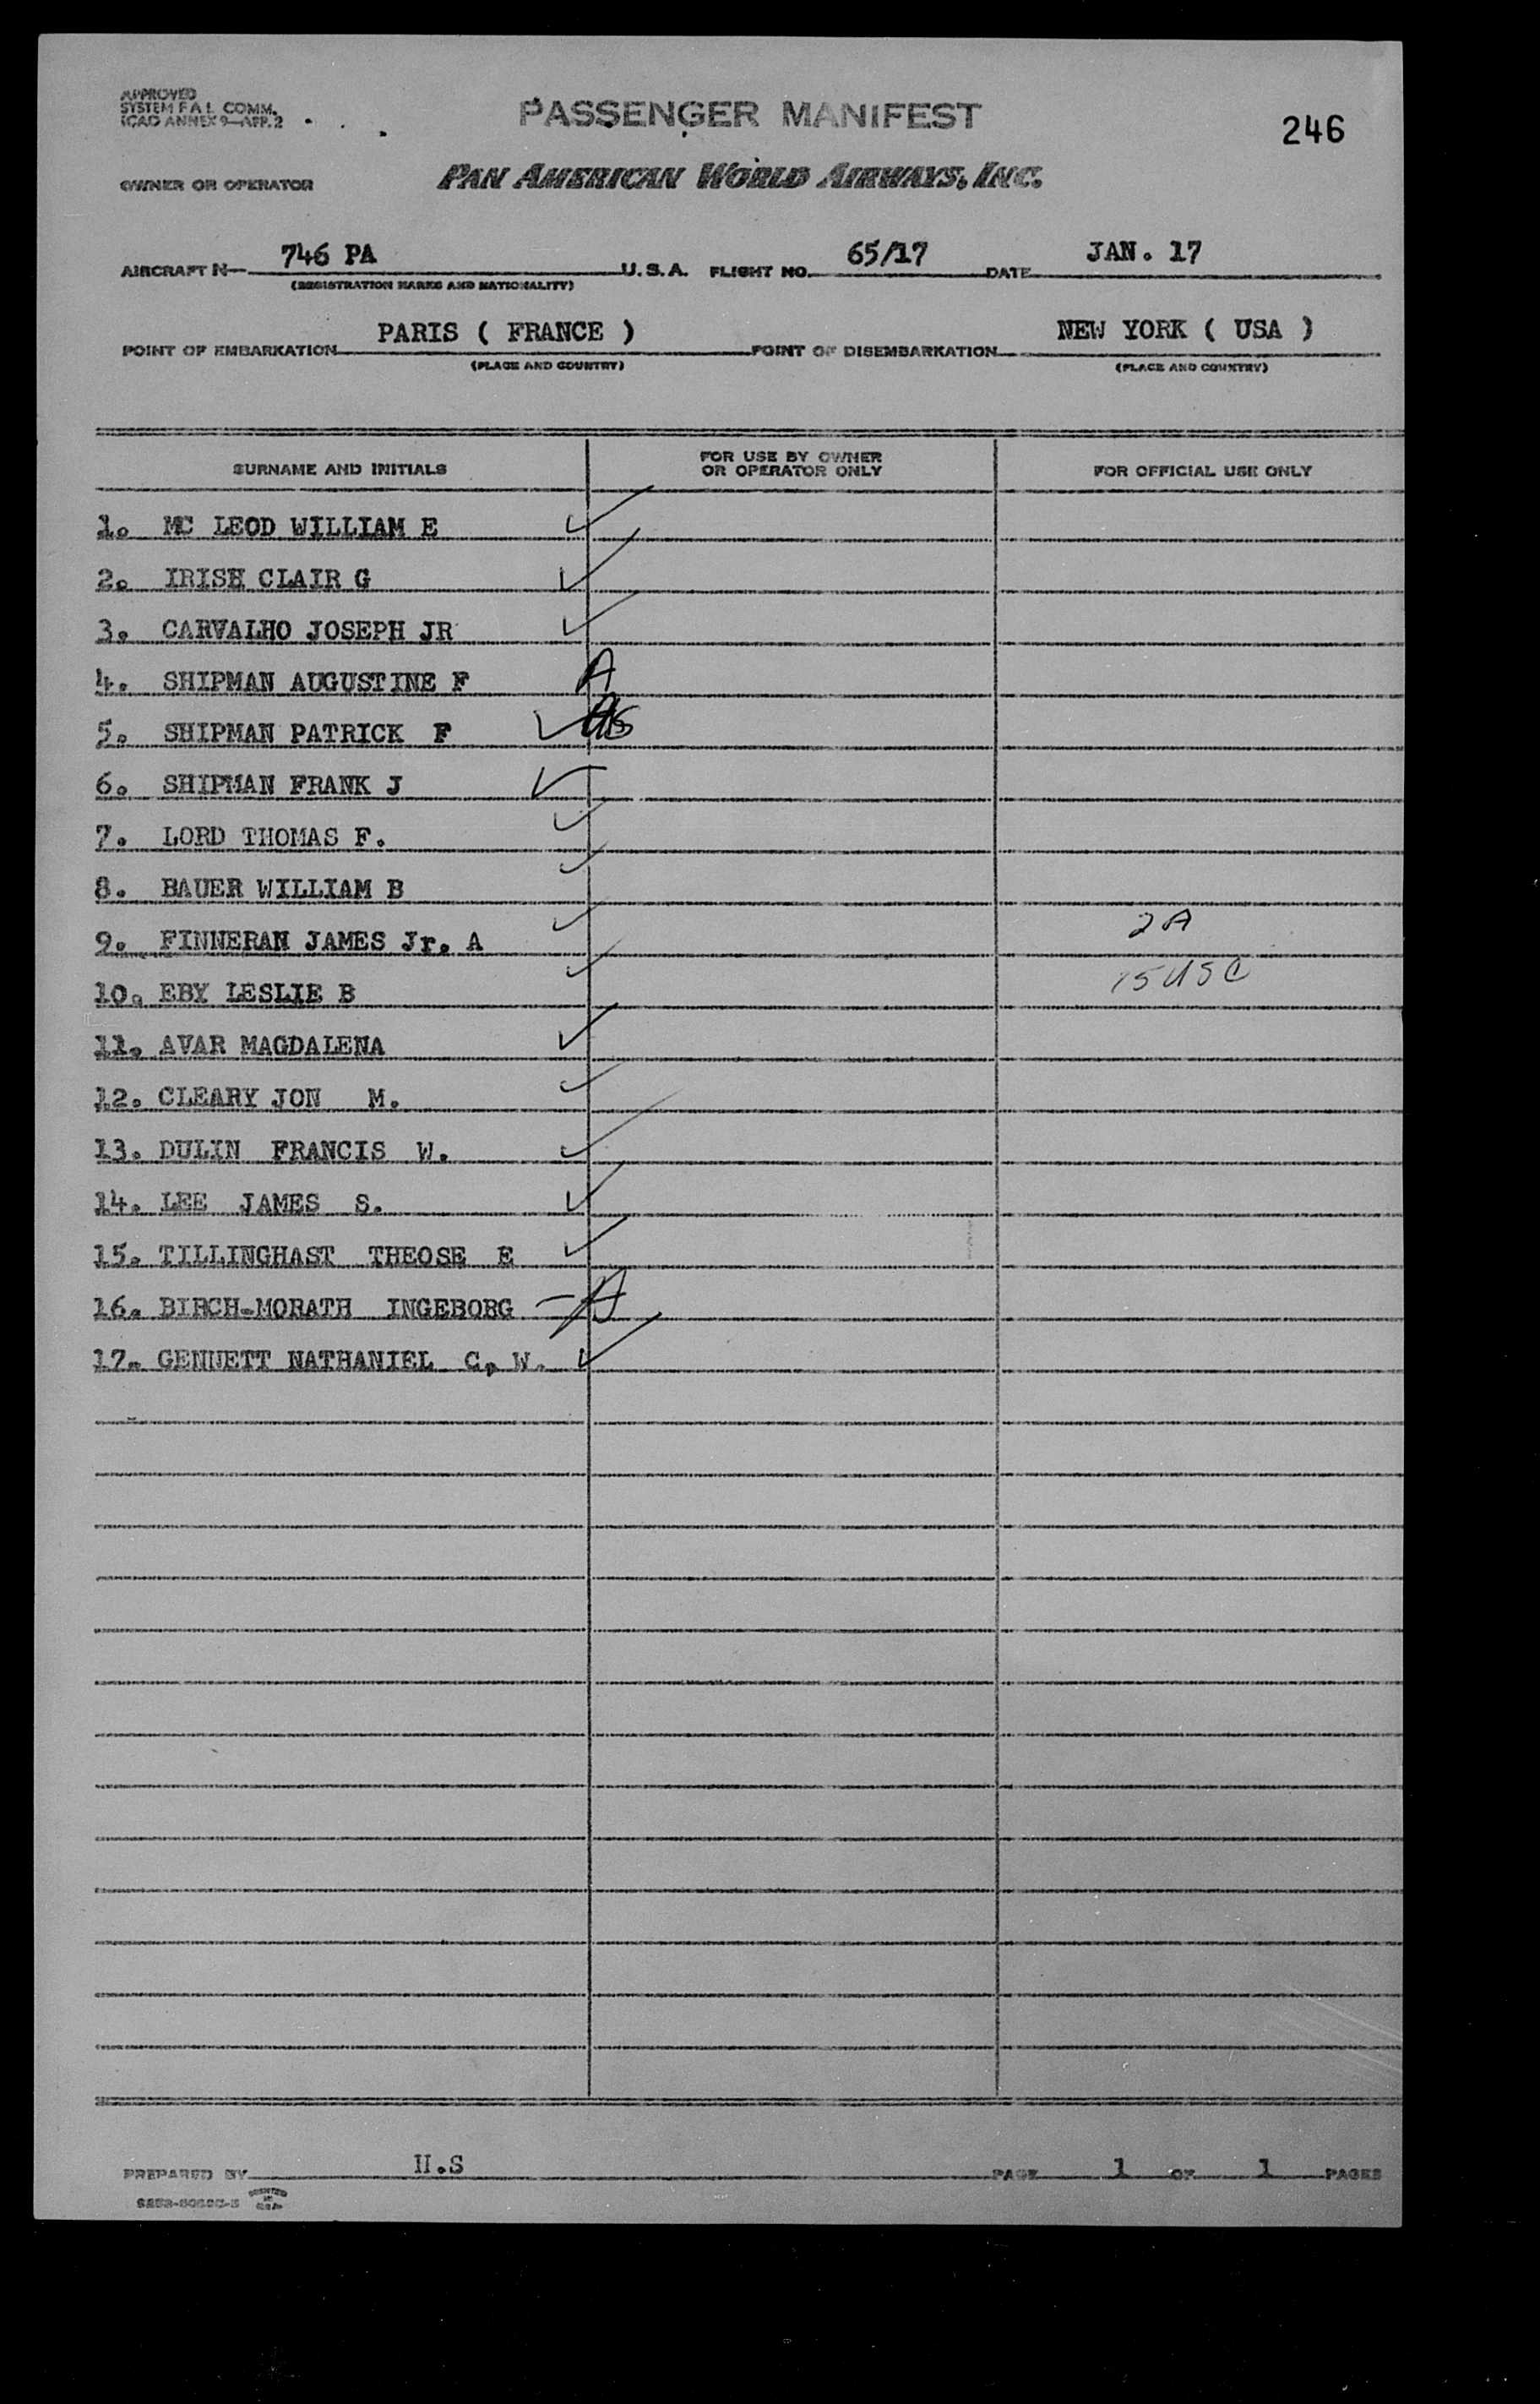 APPROVED
SYSTEM F A L COMM.
ICAO ANNEX 9—APP. 2
PASSENGER MANIFEST
246
OWNER OR OPERATOR
PAN AMERICAN WORLD AIRWAYS, INC.
AIRCRAFT N— 746 PA U. S. A. FLIGHT NO. 65/17 DATE JAN. 17
(REGISTRATION MARKS AND NATIONALITY)
POINT OF EMBARKATION PARIS ( FRANCE ) POINT OF DISEMBARKATION NEW YORK ( USA )
(PLACE AND COUNTRY) (PLACE AND COUNTRY)
SURNAME AND INITIALS
FOR USE BY OWNER
OR OPERATOR ONLY
FOR OFFICIAL USE ONLY
1. MC LEOD WILLIAM E
2. IRISH CLAIR G
3. CARVALHO JOSEPH JR
4. SHIPMAN AUGUSTINE F A
5. SHIPMAN PATRICK F
6. SHIPMAN FRANK J
7. LORD THOMAS F.
8. BAUER WILLIAM B
9. FINNERAN JAMES Jr. A 2 A
10. EBY LESLIE B 15 USC
11. AVAR MAGDALENA
12. CLEARY JON M.
13. DULIN FRANCIS W.
14. LEE JAMES S.
15. TILLINGHAST THEOSE E
16. BIRCH-MORATH INGEBORG — A
17. GENNETT NATHANIEL C, W.
PREPARED BY H.S PAGE 1 OF 1 PAGES
PRINTED
IN
U.S.A.